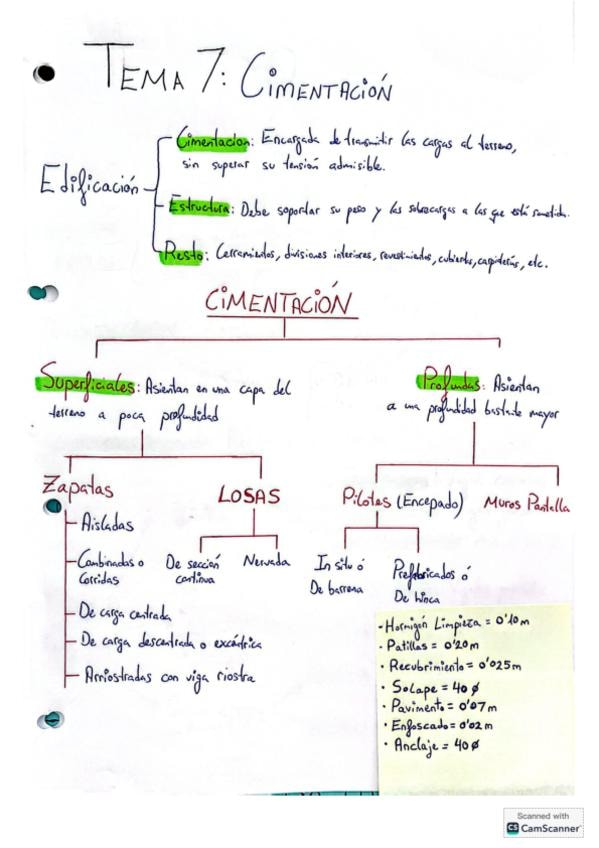 TEMA 7: CIMENTACIÓN
Edificación
Cimentacion: Encargada de transmitir las cargas al terreno,
sin superar su tensión admisible.
Estructura: Debe soportar su peso y las sobrecargas a las que está sometida.
Resto: Cerramientos, divisiones interiores, revestimientos, cubiertas, carpinterías, etc.
CIMENTACIÓN
Superficiales: Asientan en una capa del
terreno a poca profundidad
Profundas: Asientan
a una profundidad bastante mayor
Zapatas
LOSAS
Pilotes (Encepado)
Muros Pantalla
- Aisladas
- Combinadas o
Corridas
- De carga centrada
- De carga descentrada o excéntrica
- Arriostradas con viga riostra
De sección
continua
Nervada
In situ ó
De barrena
Prefabricados ó
De hinca
· Hormigón Limpieza = 0'10m
· Patillas = 0'20m
· Recubrimiento = 0'025m
· Solape = 40 ø
· Pavimento = 0'07m
· Enfoscado = 0'02m
· Anclaje = 40ø
Scanned with
CS CamScanner